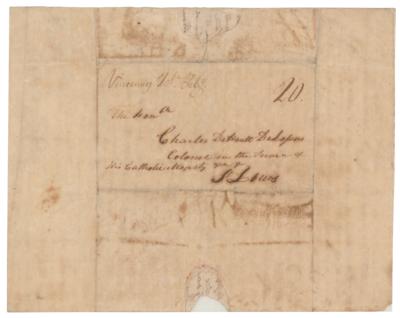 Vincennes 4th Feby
20.
The Honble
Charles Dehault Delassus
Colonel in the Service of
His Catholic Majesty
St Louis